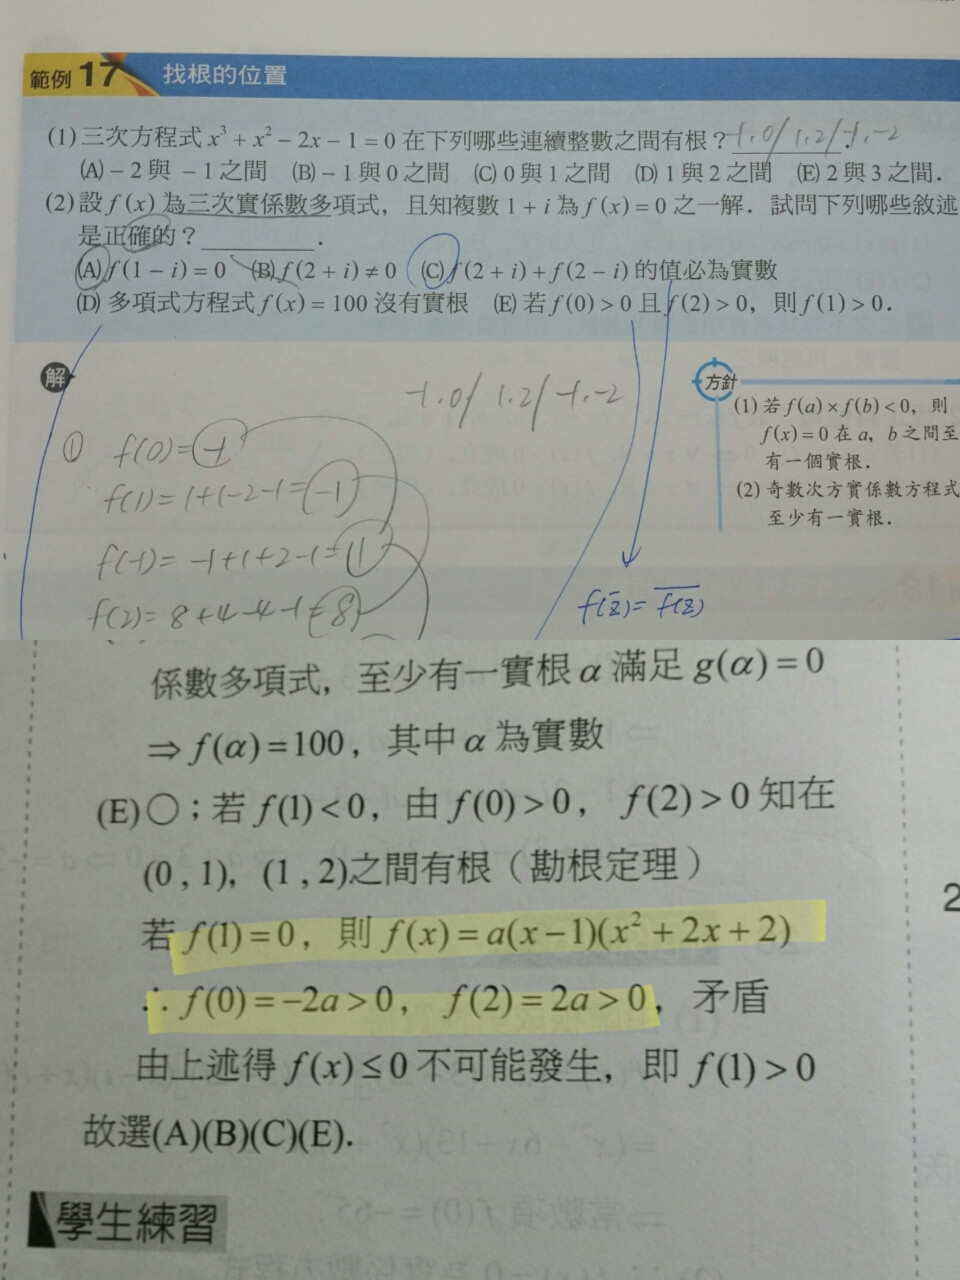 範例 17 找根的位置
(1) 三次方程式 x³ + x² − 2x − 1 = 0 在下列哪些連續整數之間有根？ -1,0/ 1,2/ -1,-2 .
(A) − 2 與 − 1 之間 (B) − 1 與 0 之間 (C) 0 與 1 之間 (D) 1 與 2 之間 (E) 2 與 3 之間．
(2) 設 f (x) 為三次實係數多項式，且知複數 1 + i 為 f (x) = 0 之一解．試問下列哪些敘述
是正確的？__________．
(A) f (1 − i) = 0 (B) f (2 + i) ≠ 0 (C) f (2 + i) + f (2 − i) 的值必為實數
(D) 多項式方程式 f (x) = 100 沒有實根 (E) 若 f (0) > 0 且 f (2) > 0，則 f (1) > 0．
解
-1,0/ 1,2/ -1,-2
① f(0)= -1
f(1)= 1+1-2-1= -1
f(-1)= -1+1+2-1= 1
f(2)= 8+4-4-1= 8
f(z̄)= \overline{f(z)}
方針
(1) 若 f (a) × f (b) < 0，則
f (x) = 0 在 a，b 之間至
有一個實根．
(2) 奇數次方實係數方程式
至少有一實根．
係數多項式，至少有一實根 α 滿足 g(α) = 0
⇒ f (α) = 100，其中 α 為實數
(E)○；若 f (1) < 0，由 f (0) > 0，f (2) > 0 知在
(0 , 1)，(1 , 2)之間有根（勘根定理）
若 f (1) = 0，則 f (x) = a(x − 1)(x² + 2x + 2)
∴ f (0) = −2a > 0，f (2) = 2a > 0，矛盾
由上述得 f (x) ≤ 0 不可能發生，即 f (1) > 0
故選(A)(B)(C)(E).
2
學生練習